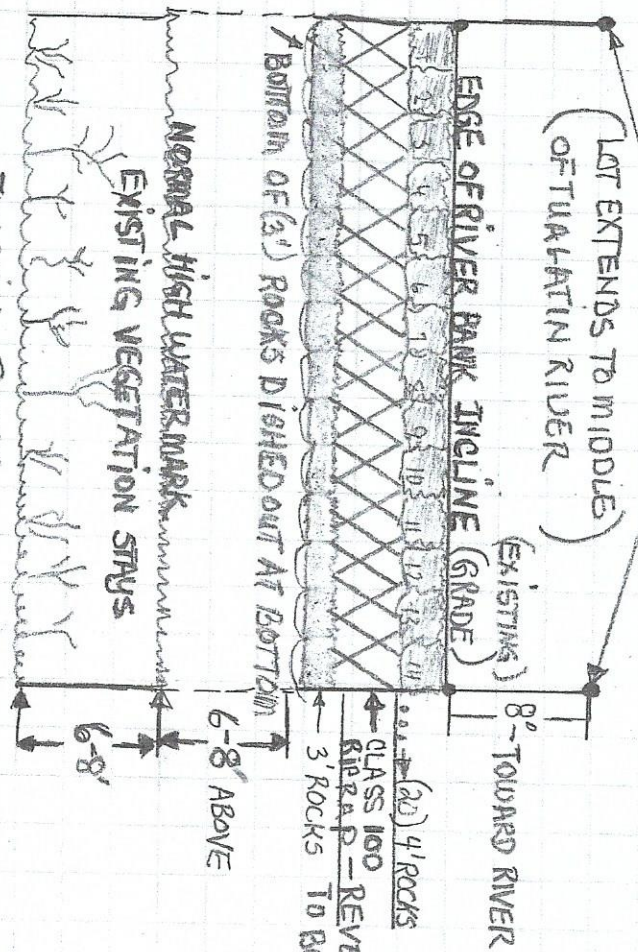 (LOT EXTENDS TO MIDDLE)
(OF TUALATIN RIVER)
8' TOWARD RIVER
(EXISTING)
EDGE OF RIVER BANK INCLINE (GRADE)
1 2 3 4 5 6 7 8 9 10 11 12 13 14
(20) 4' ROCKS
CLASS 100
RIPRAP - REVE
3' ROCKS TO BA
BOTTOM OF (3') ROCKS DISHED OUT AT BOTTOM
6-8' ABOVE
NORMAL HIGH WATER MARK
EXISTING VEGETATION STAYS
6-8'